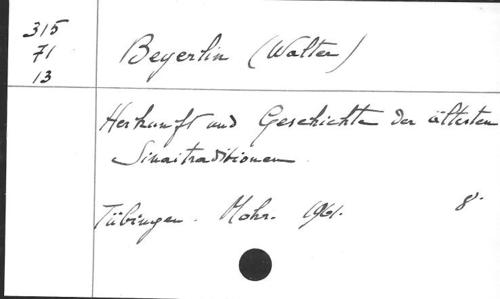 315
71
13
Beyerlin (Walter)
Herkunft und Geschichte der ältesten
Sinaitraditionen
Tübingen. Mohr. 1961. 8°